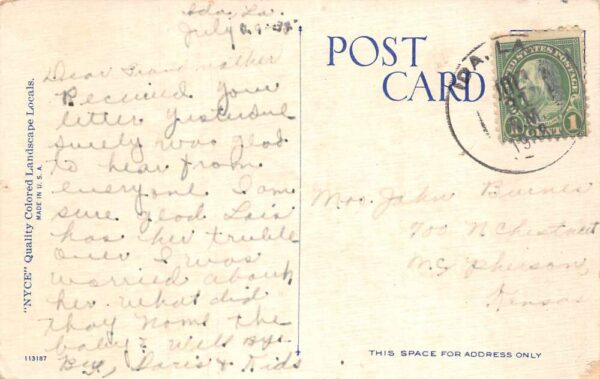 Ida, La.
July
Dear Grandmother
Received your
letter yesterdae
surely was glad
to hear from
everyone I am
sure glad Lois
has her truble
over I was
worried about
her. What did
thay name the
baby? Wells Bye
Bye, Doris & Kids
"NYCE" Quality Colored Landscape Locals.
MADE IN U. S. A.
113187
POST
CARD
IDA, LA.
UNITED STATES POSTAGE
1
Mrs. John Burnes
700 N Chestnut
McPherson,
Kansas
THIS SPACE FOR ADDRESS ONLY